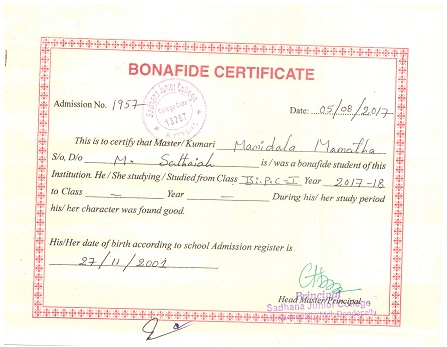 BONAFIDE CERTIFICATE
Sadhana Junior College
College Code
13267
Admission No. 1957 Date: 05/08/2017
This is to certify that Master/Kumari Mamidala Mamatha
S/o, D/o M. Sathiah is / was a bonafide student of this
Institution. He / She studying / Studied from Class Bi.P.C-I Year 2017-18
to Class — Year — During his/ her study period
his/ her character was found good.
His/Her date of birth according to school Admission register is
27/11/2001
Principal
Head Master/Principal
Sadhana Junior College